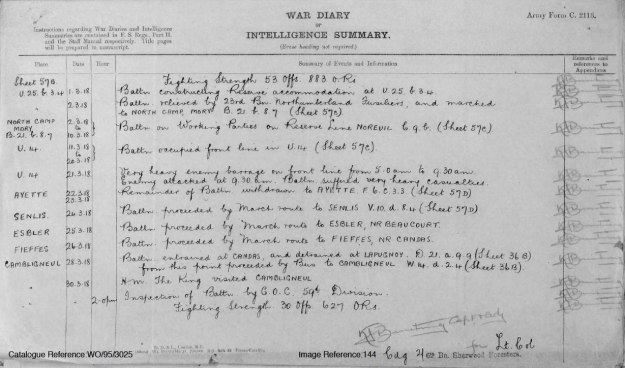 WAR DIARY
Army Form C. 2118.
OR
INTELLIGENCE SUMMARY.
(Erase heading not required.)
Instructions regarding War Diaries and Intelligence
Summaries are contained in F. S. Regs., Part II.
and the Staff Manual respectively. Title pages
will be prepared in manuscript.
Place Date Hour Summary of Events and Information Remarks and references to Appendices
Sheet 57B. Fighting Strength 53 Offs. 883 O.Rs
U.25 b.3.4 1.3.18 Battn constructing Reserve accommodation at U.25 b.3.4
2.3.18 Battn relieved by 23rd Bn Northumberland Fusiliers, and marched
to NORTH CAMP MORY B.21.b.8.7 (Sheet 57C)
NORTH CAMP MORY B.21.b.8.7 2.3.18 to 10.3.18 Battn on Working Parties on Reserve Line NOREUIL C.9.b. (Sheet 57C)
U.14 11.3.18 to 20.3.18 Battn occupied front line in U.14 (Sheet 57C).
U.14 21.3.18 Very heavy enemy barrage on front line from 5.0am to 9.30am.
Enemy attacked at 9.30am. Battn suffered very heavy casualties.
AYETTE 22.3.18 23.3.18 Remainder of Battn withdrawn to AYETTE. F.6.C.3.3 (Sheet 57D)
SENLIS. 24.3.18 Battn proceeded by March route to SENLIS V.10.d.8.4 (Sheet 57D)
ESBLER 25.3.18 Battn proceeded by March route to ESBLER, NR BEAUCOURT.
FIEFFES 26.3.18 Battn proceeded by March route to FIEFFES, NR CANDAS.
CAMBLIGNEUL 28.3.18 Battn entrained at CANDAS, and detrained at LAPUGNOY D.21.a.9.9 (Sheet 36B)
from this point proceeded by Bus to CAMBLIGNEUL W.14.d.2.4 (Sheet 36B).
30.3.18 H.M. The King visited CAMBLIGNEUL
2.0pm Inspection of Battn by G.O.C. 59th Division.
Fighting Strength 30 Offs 627 O.Rs.
for Lt. Col
Cdg 7th Bn. Sherwood Foresters.
Catalogue Reference:WO/95/3025
Image Reference:144